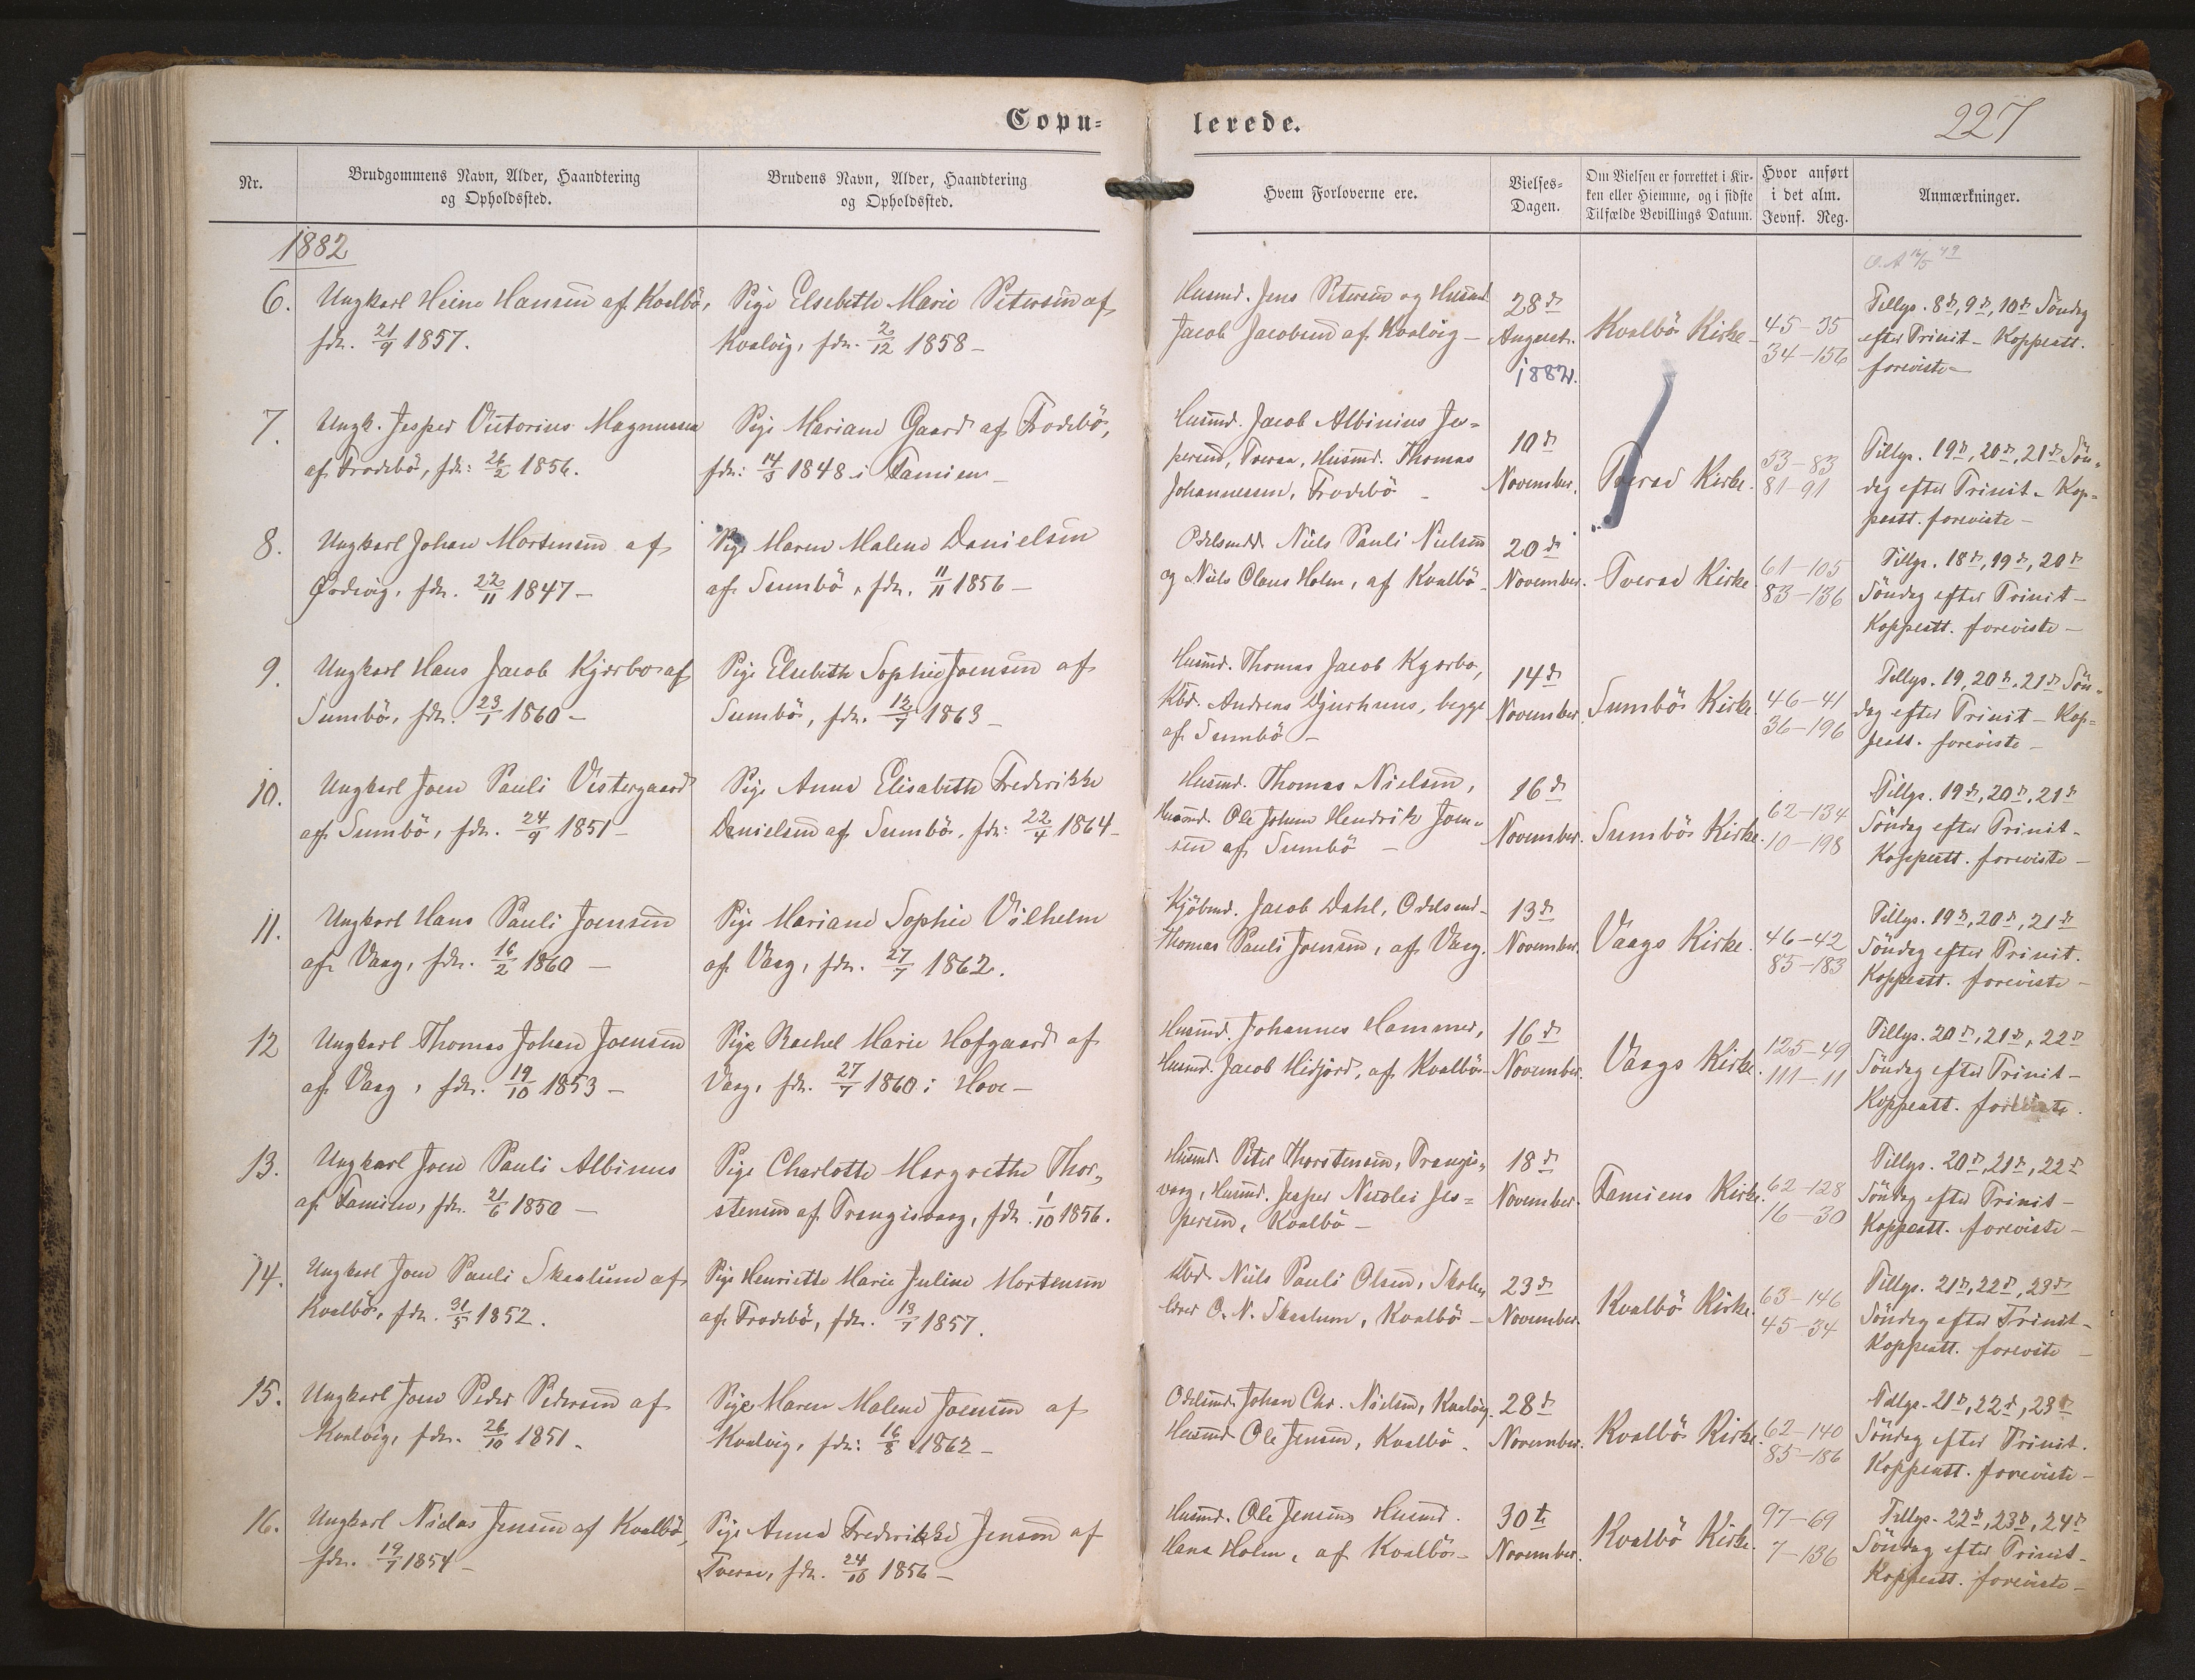 Copu=
lerede.
227
Nr.
Brudgommens Navn, Alder, Haandtering
og Opholdssted.
Brudens Navn, Alder, Haandtering
og Opholdssted.
Hvem Forloverne ere.
Vielses=
Dagen.
Om Vielsen er forrettet i Kir-
ken eller Hjemme, og i sidste
Tilfælde Bevillings Datum.
Hvor anført
i det alm.
Jevnf. Reg.
Anmærkninger.
1882
6.
Ungkarl Heine Hansen af Kvalbö,
fdr. 21/9 1857.
Pige Elsebeth Marie Petersen af
Kvalvig, fdr. 2/12 1858 –
Husmd. Jens Petersen og Husmd
Jacob Jacobsen af Kvalvig –
28de
August.
1882.
Kvalbö Kirke –
45–35
34–156
Tillys. 8d, 9d, 10d Söndag
efter Trinit – Koppeatt.
foreviste –
7.
Ungk. Jesper Victorius Magnussen
af Frodebö, fdr: 26/2 1856.
Pige Mariane Gaard af Frodebö,
fdr: 14/3 1848 i Famien –
Husmd. Jacob Albinius Jes=
persen, Tveraa, Husmd. Thomas
Johannessen, Frodebö –
10de
November.
Tveraa Kirke.
53–83
81–91
Tillys. 19d, 20d, 21d Sön-
dag efter Trinit – Kop=
peatt. foreviste –
8.
Ungkarl Johan Mortensen af
Ördevig, fdr. 22/11 1847 –
Pige Maren Malene Danielsen
af Sumbö, fdr. 11/11 1856 –
Odelsmdd. Niels Pauli Nielsen
og Niels Claus Holm, af Kvalbö –
20de
November.
Tveraa Kirke
61–105
83–136
Tillys. 18d, 19d, 20d
Söndag efter Trinit –
Koppeatt. foreviste –
9.
Ungkarl Hans Jacob Kjærbo af
Sumbö, fdr. 23/1 1860 –
Pige Elsebeth Sophie Joensen af
Sumbö, fdr. 12/7 1863 –
Husmd. Thomas Jacob Kjærbo,
Kbd. Andreas Djurhuus, begge
af Sumbö –
14de
November.
Sumbö Kirke.
46–41
36–196
Tillys. 19, 20d, 21d Sön-
dag efter Trinit – Kop=
peatt. foreviste –
10.
Ungkarl Joen Pauli Vestergaard
af Sumbö, fdr. 24/9 1851 –
Pige Anna Elisabeth Frederikke
Danielsen af Sumbö, fdr: 22/4 1864 –
Husmd. Thomas Nielsen,
Husmd. Ole Johan Hendrik Joen-
sen af Sumbö –
16de
November.
Sumbö Kirke.
62–134
10–198
Tillys. 19d, 20d, 21d
Söndag efter Trinit –
Koppeatt. foreviste –
11.
Ungkarl Hans Pauli Joensen
af Vaag, fdr. 16/2 1860 –
Pige Mariane Sophie Vilhelm
af Vaag, fdr. 27/7 1862.
Kjöbmd. Jacob Dahl, Odelsmd.
Thomas Pauli Joensen, af Vaag.
13de
November.
Vaags Kirke.
46–42
85–183
Tillys. 19d, 20d, 21d
Söndag efter Trinit.
Koppeatt. foreviste –
12
Ungkarl Thomas Johan Joensen
af Vaag, fdr. 19/10 1853 –
Pige Rachel Marie Hofgaard af
Vaag, fdr. 27/7 1860 i Hove –
Husmd. Johannes Hammer,
Husmd. Jacob Hidjord, af Kvalbö –
16de
November.
Vaags Kirke.
125–49
111–11
Tillys. 20d, 21d, 22d
Söndag efter Trinit –
Koppeatt. foreviste.
13.
Ungkarl Joen Pauli Albinus
af Famien, fdr. 21/6 1850 –
Pige Charlotte Margrethe Thor-
stensen af Trangisvaag, fdr. 1/10 1856.
Husmd. Peter Thorstensen, Trangis-
vaag, Husmd. Jesper Nicolai Jes=
persen, Kvalbö –
18de
November.
Famiens Kirke.
62–128
16–30
Tillys. 20d, 21d, 22d
Söndag efter Trinit –
Koppeatt. foreviste –
14.
Ungkarl Joen Pauli Skaalum af
Kvalbö, fdr. 31/5 1852.
Pige Henriette Marie Juline Mortensen
af Frodebö, fdr. 13/7 1857.
Kbd. Niels Pauli Olsen, Skole-
lærer O. N. Skaalum, Kvalbö –
23de
November.
Kvalbö Kirke.
63–146
45–34
Tillys. 21d, 22d, 23d
Söndag efter Trinit –
Koppeatt. foreviste –
15.
Ungkarl Joen Peder Pedersen af
Kvalvig, fdr. 26/10 1851.
Pige Maren Malene Joensen af
Kvalvig, fdr: 16/8 1862 –
Odelsmd. Johan Chr. Nielsen, Kvalvig.
Husmd Ole Jensen, Kvalbö.
28de
November.
Kvalbö Kirke.
62–140
85–186
Tillys. 21d, 22d, 23d
Söndag efter Trinit.
Koppeatt. foreviste –
16.
Ungkarl Niclas Jensen af Kvalbö,
fdr. 19/7 1854 –
Pige Anna Frederikke Jensen af
Tveraa, fdr. 24/10 1856 –
Husmd. Ole Jensen, Husmd.
Hans Holm, af Kvalbö –
30te
November.
Kvalbö Kirke.
97–69
7–136
Tillys. 22d, 23d, 24d
Söndag efter Trinit –
Koppeatt. foreviste –